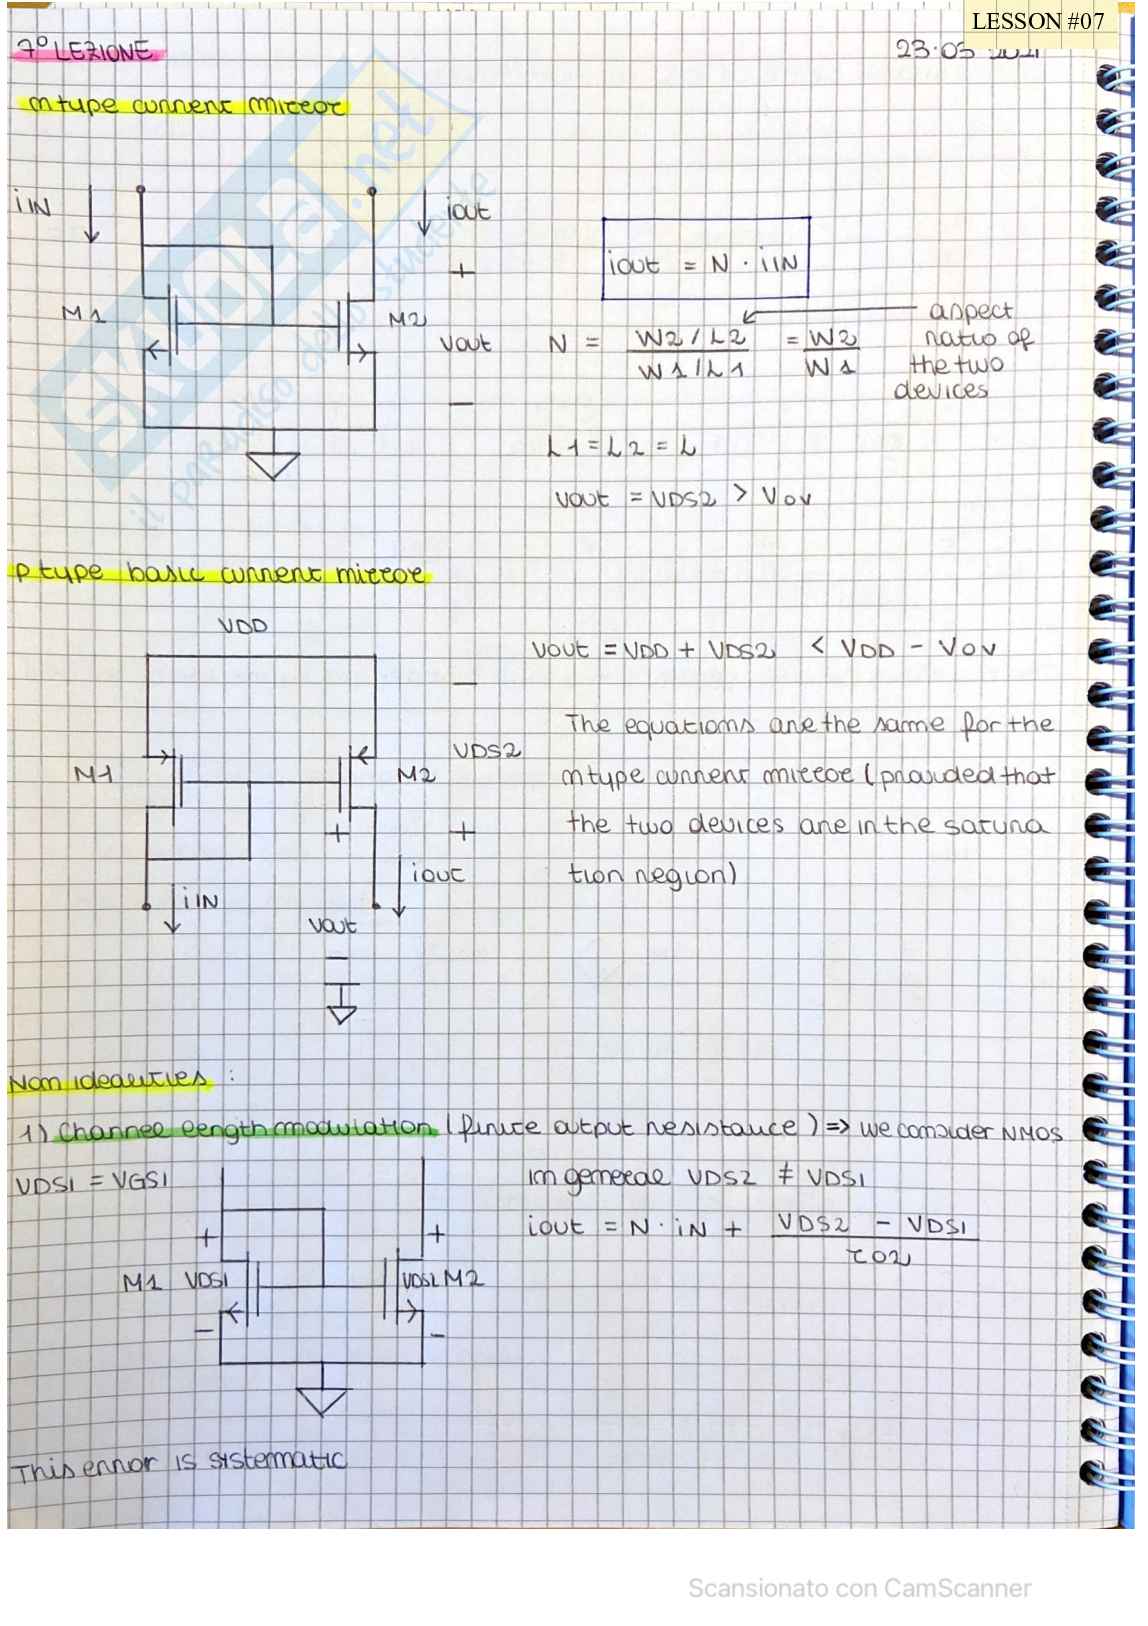 LESSON #07
7° LEZIONE
n type current mirror
iIN
iout
+
M1
M2
vout
−
iout = N · iIN
N = W2/L2 / W1/L1 = W2 / W1
aspect
ratio of
the two
devices
L1 = L2 = L
vout = VDS2 > Vov
P type basic current mirror
VDD
vout = VDD + VDS2 < VDD − Vov
−
The equations are the same for the
n type current mirror (provided that
the two devices are in the satura
tion region)
M1
M2
VDS2
+
+
iIN
iout
vout
−
Non idealities :
1) Channel length modulation (finite output resistance) => we consider NMOS
VDS1 = VGS1
In general VDS2 ≠ VDS1
iout = N · iN + VDS2 − VDS1 / r02
+
+
M1 VDS1
VDS2 M2
−
−
This error is sistematic
Scansionato con CamScanner
SKUOLa.net
il paradiso dello studente